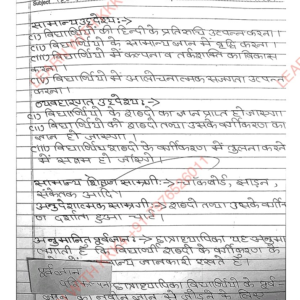 सामान्य उद्देश्य:->
(i) विद्यार्थियों की हिन्दी के प्रति रुचि उत्पन्न करना।
(ii) विद्यार्थियों के सामान्य ज्ञान में वृद्धि करना।
(iii) विद्यार्थियों में कल्पना व तर्कशक्ति का विकास
करना।
(iv) विद्यार्थियों में आलोचनात्मक सजगता उत्पन्न
करना।
व्यवहारगत उद्देश्य:->
(i) विद्यार्थियों को शब्दों का ज्ञान प्राप्त हो जाएगा।
(ii) विद्यार्थियों में शब्दों तथा उसके वर्गीकरण का
ज्ञान हो जाएगा।
(iii) विद्यार्थी शब्दों के वर्गीकरण में तुलना करने
में सक्षम हो जाएंगे।
सामान्य शिक्षण सामग्री:-> चॉकबोर्ड, झाड़न,
संकेतक आदि।
अनुदेशात्मक सामग्री:-> शब्दों तथा उसके वर्गीकरण
दर्शाता हुआ चार्ट।
अनुमानित पूर्वज्ञान:-> छात्राध्यापिका यह अनुमान
विद्यार्थी शब्दों के वर्गीकरण के
सामान्य जानकारी रखते हैं।
पूर्व ज्ञान
छात्राध्यापिका विद्यार्थियों के पूर्व